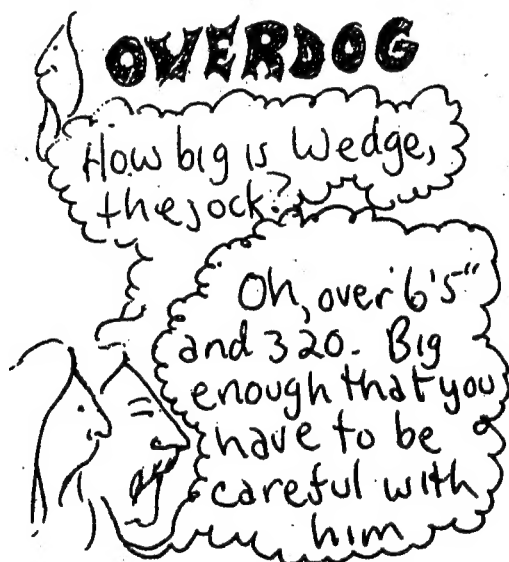 OVERDOG
How big is Wedge,
the jock?
Oh, over 6'5"
and 320. Big
enough that you
have to be
careful with
him